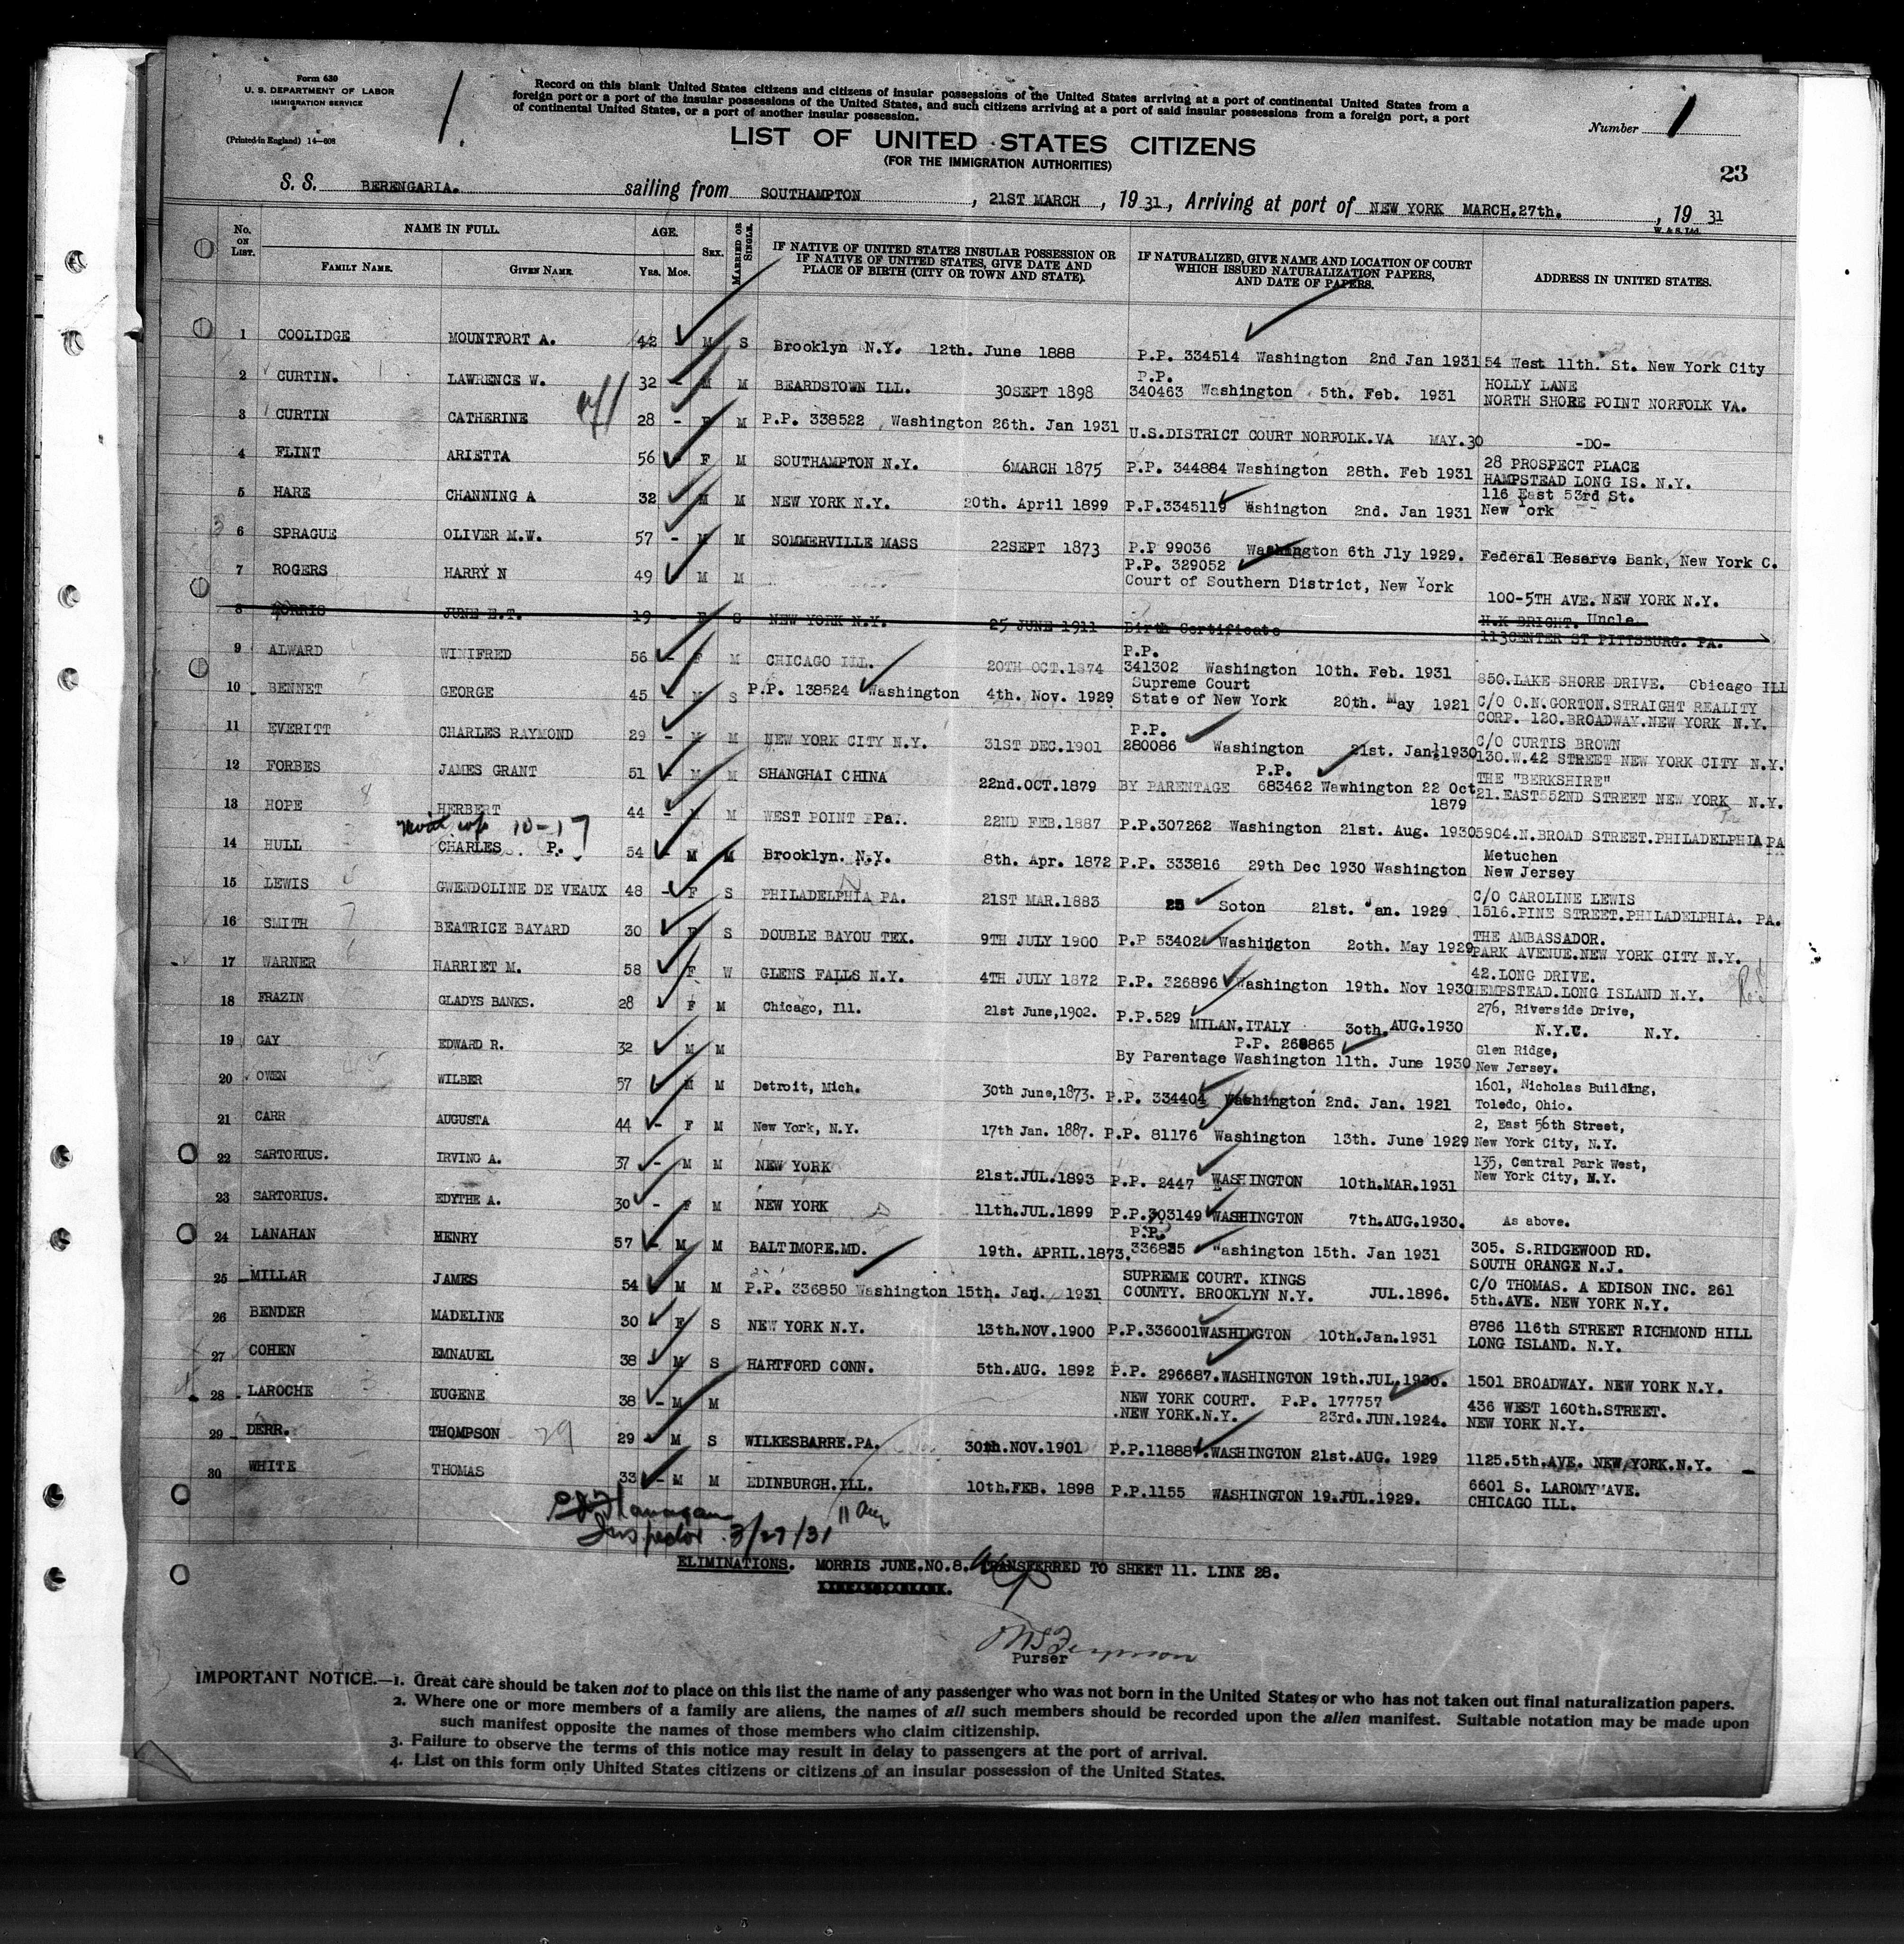 Form 630
U. S. DEPARTMENT OF LABOR
IMMIGRATION SERVICE
(Printed in England) 14—608
1.
Record on this blank United States citizens and citizens of insular possessions of the United States arriving at a port of continental United States from a
foreign port or a port of the insular possessions of the United States, and such citizens arriving at a port of said insular possessions from a foreign port, a port
of continental United States, or a port of another insular possession.
Number 1
LIST OF UNITED STATES CITIZENS
(FOR THE IMMIGRATION AUTHORITIES)
23
S. S. BERENGARIA. sailing from SOUTHAMPTON , 21ST MARCH , 19 31 , Arriving at port of NEW YORK MARCH.27th. , 19 31
W. & S. Ltd.
No. ON LIST. NAME IN FULL. FAMILY NAME. GIVEN NAME. AGE. Yrs. Mos. SEX. MARRIED OR SINGLE. IF NATIVE OF UNITED STATES INSULAR POSSESSION OR IF NATIVE OF UNITED STATES, GIVE DATE AND PLACE OF BIRTH (CITY OR TOWN AND STATE). IF NATURALIZED, GIVE NAME AND LOCATION OF COURT WHICH ISSUED NATURALIZATION PAPERS, AND DATE OF PAPERS. ADDRESS IN UNITED STATES.
1 COOLIDGE MOUNTFORT A. 42 M S Brooklyn N.Y. 12th. June 1888 P.P. 334514 Washington 2nd Jan 1931 54 West 11th. St. New York City
2 CURTIN. LAWRENCE W. 32 - M M BEARDSTOWN ILL. 30SEPT 1898 P.P. 340463 Washington 5th. Feb. 1931 HOLLY LANE NORTH SHORE POINT NORFOLK VA.
3 CURTIN CATHERINE 28 - F M P.P. 338522 Washington 26th. Jan 1931 U.S.DISTRICT COURT NORFOLK.VA MAY.30 -DO-
4 FLINT ARIETTA 56 F M SOUTHAMPTON N.Y. 6MARCH 1875 P.P. 344884 Washington 28th. Feb 1931 28 PROSPECT PLACE HAMPSTEAD LONG IS. N.Y.
5 HARE CHANNING A 32 M M NEW YORK N.Y. 20th. April 1899 P.P.3345119 Washington 2nd. Jan 1931 116 East 53rd St. New York
6 SPRAGUE OLIVER M.W. 57 - M M SOMMERVILLE MASS 22SEPT 1873 P.P 99036 Washington 6th Jly 1929. Federal Reserve Bank, New York C.
7 ROGERS HARRY N 49 M M P.P. 329052 Court of Southern District, New York 100-5TH AVE. NEW YORK N.Y.
8 MORRIS JUNE E.T. 19 - F S NEW YORK N.Y. 25 JUNE 1911 Birth Certificate H.K BRIGHT. Uncle. 113CENTER ST PITTSBURG. PA.
9 ALWARD WINIFRED 56 - F M CHICAGO ILL. 20TH OCT.1874 P.P. 341302 Washington 10th. Feb. 1931 850.LAKE SHORE DRIVE. Cbicago ILL
10 BENNET GEORGE 45 - M S P.P. 138524 Washington 4th. Nov. 1929 Supreme Court State of New York 20th. May 1921 C/O O.N.GORTON.STRAIGHT REALITY CORP. 120.BROADWAY.NEW YORK N.Y.
11 EVERITT CHARLES RAYMOND 29 - M M NEW YORK CITY N.Y. 31ST DEC.1901 P.P. 280086 Washington 21st. Jan 1930 C/O CURTIS BROWN 130.W.42 STREET NEW YORK CITY N.Y.
12 FORBES JAMES GRANT 51 - M M SHANGHAI CHINA 22nd.OCT.1879 BY PARENTAGE P.P. 683462 Wawhington 22 Oct 1879 THE "BERKSHIRE" 21.EAST552ND STREET NEW YORK N.Y.
13 HOPE HERBERT 44 - M M WEST POINT PPa.. 22ND FEB.1887 P.P.307262 Washington 21st. Aug. 1930 5904.N.BROAD STREET.PHILADELPHIA PA
10-17
14 HULL CHARLES P. 54 - M M Brooklyn. N.Y. 8th. Apr. 1872 P.P. 333816 29th Dec 1930 Washington Metuchen New Jersey
15 LEWIS GWENDOLINE DE VEAUX 48 - F S PHILADELPHIA PA. 21ST MAR.1883 25 Soton 21st. an. 1929 C/O CAROLINE LEWIS 1516.PINE STREET.PHILADELPHIA. PA.
16 SMITH BEATRICE BAYARD 30 F S DOUBLE BAYOU TEX. 9TH JULY 1900 P.P 53402 Washindton 2oth. May 1929 THE AMBASSADOR. PARK AVENUE.NEW YORK CITY N.Y.
17 WARNER HARRIET M. 58 F W GLENS FALLS N.Y. 4TH JULY 1872 P.P. 326896 Washington 19th. Nov 1930 42.LONG DRIVE. HEMPSTEAD.LONG ISLAND N.Y.
18 FRAZIN GLADYS BANKS. 28 F M Chicago, Ill. 21st June,1902. P.P.529 MILAN.ITALY 30th.AUG.1930 276, Riverside Drive, N.Y.C. N.Y.
19 GAY EDWARD R. 32 M M P.P. 268865 By Parentage Washington 11th. June 1930 Glen Ridge, New Jersey.
20 OWEN WILBER 57 M M Detroit, Mich. 30th June,1873. P.P. 334404 Washington 2nd. Jan. 1921 1601, Nicholas Building, Toledo, Ohio.
21 CARR AUGUSTA 44 - F M New York, N.Y. 17th Jan. 1887. P.P. 81176 Washington 13th. June 1929 2, East 56th Street, New York City, N.Y.
22 SARTORIUS. IRVING A. 37 - M M NEW YORK 21st.JUL.1893 P.P. 2447 WASHINGTON 10th.MAR.1931 135, Central Park West, New York City, N.Y.
23 SARTORIUS. EDYTHE A. 30 - F M NEW YORK 11th.JUL.1899 P.P.303149 WASHINGTON 7th.AUG.1930. As above.
24 LANAHAN HENRY 57 - M M BALTIMORE.MD. 19th. APRIL.1873. P.P. 336835 "ashington 15th. Jan 1931 305. S.RIDGEWOOD RD. SOUTH ORANGE N.J.
25 MILLAR JAMES 54 M M P.P. 336850 Washington 15th. Jan. 1931 SUPREME COURT. KINGS COUNTY. BROOKLYN N.Y. JUL.1896. C/O THOMAS. A EDISON INC. 261 5th.AVE. NEW YORK N.Y.
26 BENDER MADELINE 30 - F S NEW YORK N.Y. 13th.NOV.1900 P.P.336001WASHINGTON 10th.Jan.1931 8786 116th STREET RICHMOND HILL LONG ISLAND. N.Y.
27 COHEN EMNAUEL 38 M S HARTFORD CONN. 5th.AUG. 1892 P.P. 296687.WASHINGTON 19th.JUL.1930. 1501 BROADWAY. NEW YORK N.Y.
28 LAROCHE EUGENE 38 - M M NEW YORK COURT. P.P. 177757 .NEW YORK.N.Y. 23rd.JUN.1924. 436 WEST 160th.STREET. NEW YORK N.Y.
29 DERR. THOMPSON 29 29 - M S WILKESBARRE.PA. 30th.NOV.1901 P.P.118887.WASHINGTON 21st.AUG. 1929 1125.5th.AVE. NEW YORK.N.Y.
30 WHITE THOMAS 33 - M M EDINBURGH.ILL. 10th.FEB. 1898 P.P.1155 WASHINGTON 19.JUL.1929. 6601 S. LAROMY AVE. CHICAGO ILL.
Flanagan
Inspector 3/27/31
ELIMINATIONS. MORRIS JUNE.NO.8. TRANSFERRED TO SHEET 11. LINE 28.
Purser
IMPORTANT NOTICE.—1. Great care should be taken not to place on this list the name of any passenger who was not born in the United States or who has not taken out final naturalization papers.
2. Where one or more members of a family are aliens, the names of all such members should be recorded upon the alien manifest. Suitable notation may be made upon
such manifest opposite the names of those members who claim citizenship.
3. Failure to observe the terms of this notice may result in delay to passengers at the port of arrival.
4. List on this form only United States citizens or citizens of an insular possession of the United States.